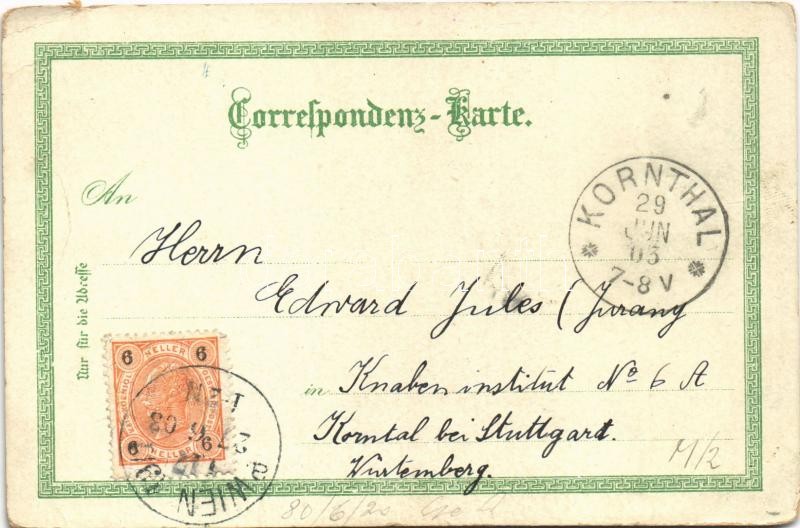 Correspondenz-Karte.
An
Herrn
Edward Jules (Jurany
in Knabeninstitut No 6 A
Korntal bei Stuttgart.
Würtemberg.
Nur für die Adresse
KORNTHAL
29
JUN
03
7-8 V
6 HELLER 6
WIEN
M/2
80/6/20